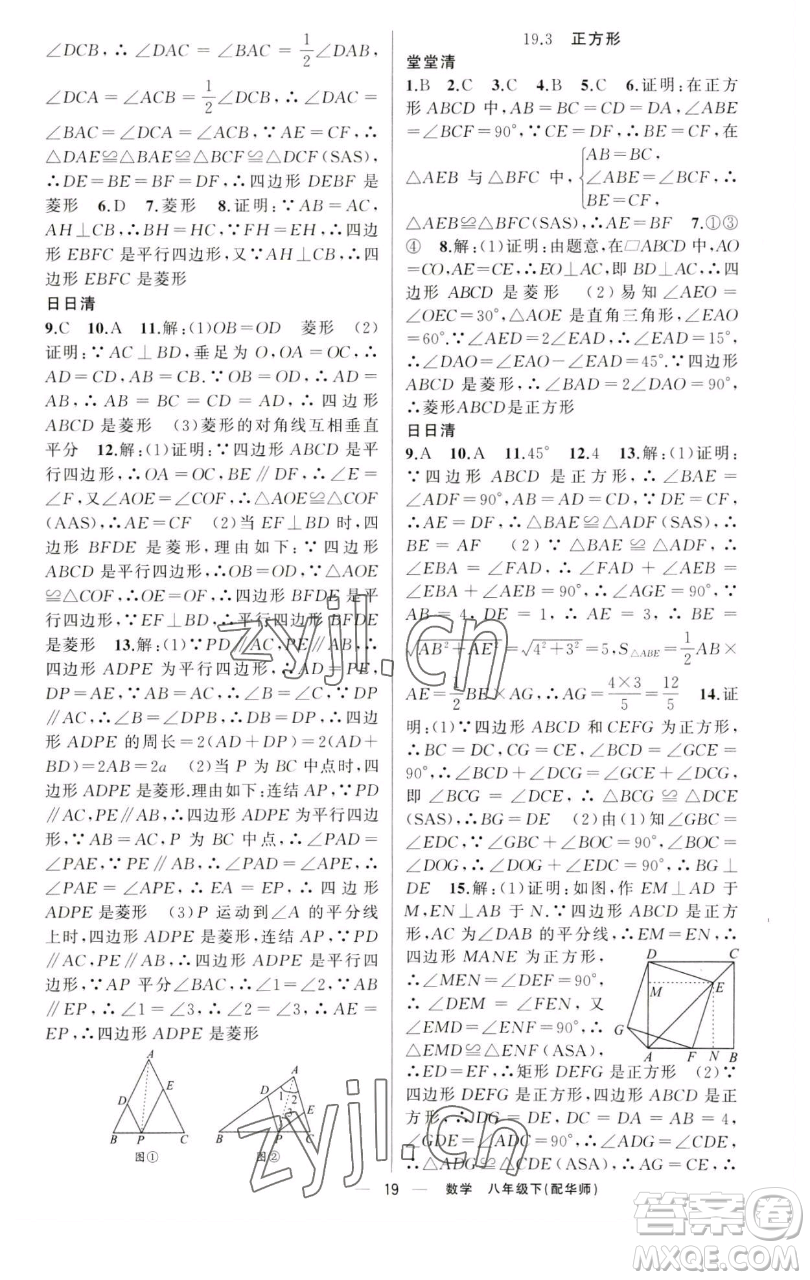 ∠DCB,∴∠DAC=∠BAC=1/2∠DAB,
∠DCA=∠ACB=1/2∠DCB,∴∠DAC=
∠BAC=∠DCA=∠ACB,∵AE=CF,∴
△DAE≌△BAE≌△BCF≌△DCF(SAS),
∴DE=BE=BF=DF,∴四边形 DEBF 是
菱形 6.D 7.菱形 8.证明:∵AB=AC,
AH⊥CB,∴BH=HC,∵FH=EH,∴四
边形 EBFC 是平行四边形,又∵AH⊥CB,∴
四边形 EBFC 是菱形
日日清
9.C 10.A 11.解:(1)OB=OD 菱形 (2)
证明:∵AC⊥BD,垂足为 O,OA=OC,∴
AD=CD,AB=BC,∵AB=AD,∴
AD=AB=BC=CD,∴四边形
ABCD 是菱形 (3)菱形的对角线互相垂直
平分 12.解:(1)证明:∵四边形 ABCD 是平
行四边形,∴OA=OC,BE∥DF,∴∠E=
∠F,又∠AOE=∠COF,∴△AOE≌△COF
(AAS),∴AE=CF (2)当 EF⊥BD 时,四
边形 BFDE 是菱形,理由如下:∵四边形
ABCD 是平行四边形,∴OB=OD,∵△AOE
≌△COF,∴OE=OF,∴四边形 BFDE 是平
行四边形,∵EF⊥BD,∴四边形 BFDE
是菱形 13.解:(1)∵PD∥AC,PE∥AB,∴
四边形 ADPE 为平行四边形,∴AD=PE,
DP=AE,∵AB=AC,∴∠B=∠C,∵DP
∥AC,∴∠B=∠DPB,∴DB=DP,∴四边
形 ADPE 的周长=2(AD+DP)=2(AD+
BD)=2AB=2a (2)当 P 为 BC 中点时,四
边形 ADPE 是菱形.理由如下:连结 AP,∵PD
∥AC,PE∥AB,∴四边形 ADPE 为平行四边
形,∵AB=AC,P 为 BC 中点,∴∠PAD=
∠PAE,∵PE∥AB,∴∠PAD=∠APE,∴
∠PAE=∠APE,∴EA=EP,∴四边形
ADPE 是菱形 (3)P 运动到∠A 的平分线
上时,四边形 ADPE 是菱形,连结 AP,∵PD
∥AC,PE∥AB,∴四边形 ADPE 是平行四边
形,∵AP 平分∠BAC,∴∠1=∠2,∵AB
∥EP,∴∠1=∠3,∴∠2=∠3,∴AE=
EP,∴四边形 ADPE 是菱形
A
D E
B P C
图①
A
D 1 2
3 E
B P C
图②
19.3 正方形
堂堂清
1.B 2.C 3.C 4.B 5.C 6.证明:在正方
形 ABCD 中,AB=BC=CD=DA,∠ABE
=∠BCF=90°,∵CE=DF,∴BE=CF,在
△AEB 与△BFC 中,{AB=BC,
∠ABE=∠BCF,∴
BE=CF,
△AEB≌△BFC(SAS),∴AE=BF 7.①③
④ 8.解:(1)证明:由题意,在□ABCD 中,AO
=CO,AE=CE,∴EO⊥AC,即 BD⊥AC,∴四
边形 ABCD 是菱形 (2)易知∠AEO=
∠OEC=30°,△AOE 是直角三角形,∴∠EAO
=60°.∵∠AED=2∠EAD,∴∠EAD=15°,
∴∠DAO=∠EAO-∠EAD=45°.∵四边形
ABCD 是菱形,∴∠BAD=2∠DAO=90°,
∴菱形ABCD是正方形
日日清
9.A 10.A 11.45° 12.4 13.解:(1)证明:
∵四边形 ABCD 是正方形,∴∠BAE=
∠ADF=90°,AB=AD=CD,∵DE=CF,
∴AE=DF,∴△BAE≌△ADF(SAS),∴
BE=AF (2)∵△BAE≌△ADF,∴
∠EBA=∠FAD,∴∠GAE+∠AEG=
∠EBA+∠AEG=90°,∴∠AGE=90°,∵
AB=4,DE=1,∴AE=3,∴BE=
√AB²+AE²=√4²+3²=5,S△ABE=1/2AB×
AE=1/2BE×AG,∴AG=4×3/5=12/5 14.证
明:(1)∵四边形 ABCD 和 CEFG 为正方形,
∴BC=DC,CG=CE,∠BCD=∠GCE=
90°,∴∠BCD+∠DCG=∠GCE+∠DCG,
即∠BCG=∠DCE,∴△BCG≌△DCE
(SAS),∴BG=DE (2)由(1)知∠GBC=
∠EDC,∵∠GBC+∠BOC=90°,∠BOC=
∠DOG,∴∠EDC+∠DOG=90°,∴BG⊥
DE 15.解:(1)证明:如图,作 EM⊥AD 于
M,EN⊥AB 于 N.∵四边形 ABCD 是正方
形,AC 为∠DAB 的平分线,∴EM=EN,∴
四边形 MANE 为正方形,
∴∠MEN=∠DEF=90°,
∴∠DEM=∠FEN,又
∠EMD=∠ENF=90°,∴
△EMD≌△ENF(ASA),
∴ED=EF,∴矩形 DEFG 是正方形 (2)∵
四边形 DEFG 是正方形,四边形 ABCD 是正
方形,∴DG=DE,DC=DA=AB=4,
∠GDE=∠ADC=90°,∴∠ADG=∠CDE,
∴△ADG≌△CDE(SAS),∴AG=CE,∴
D C
M E
G
A F N B
19 数学 八年级下(配华师)
zyjl.cn
zyjl.cn
答案圈
MXQE.COM